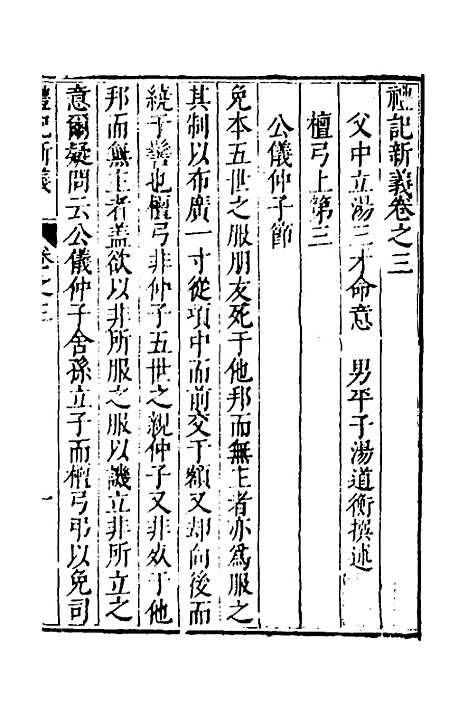 禮記新義卷之三
父中立湯三才命意　男平子湯道衡撰述
檀弓上第三
公儀仲子節
免本五世之服朋友死于他邦而無主者亦為服之
其制以布廣一寸從項中而前交于額又却向後而
繞于髻也檀弓非仲子五世之親仲子又非死于他
邦而無主者蓋欲以非所服之服以譏立非所立之
意爾疑問云公儀仲子舍孫立子而檀弓弔以免司
禮記新義
卷之三
一